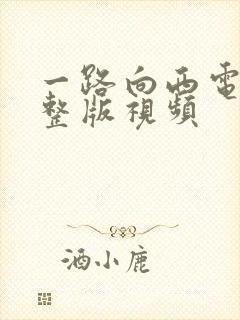 一路向西電
整版視頻
酒小鹿